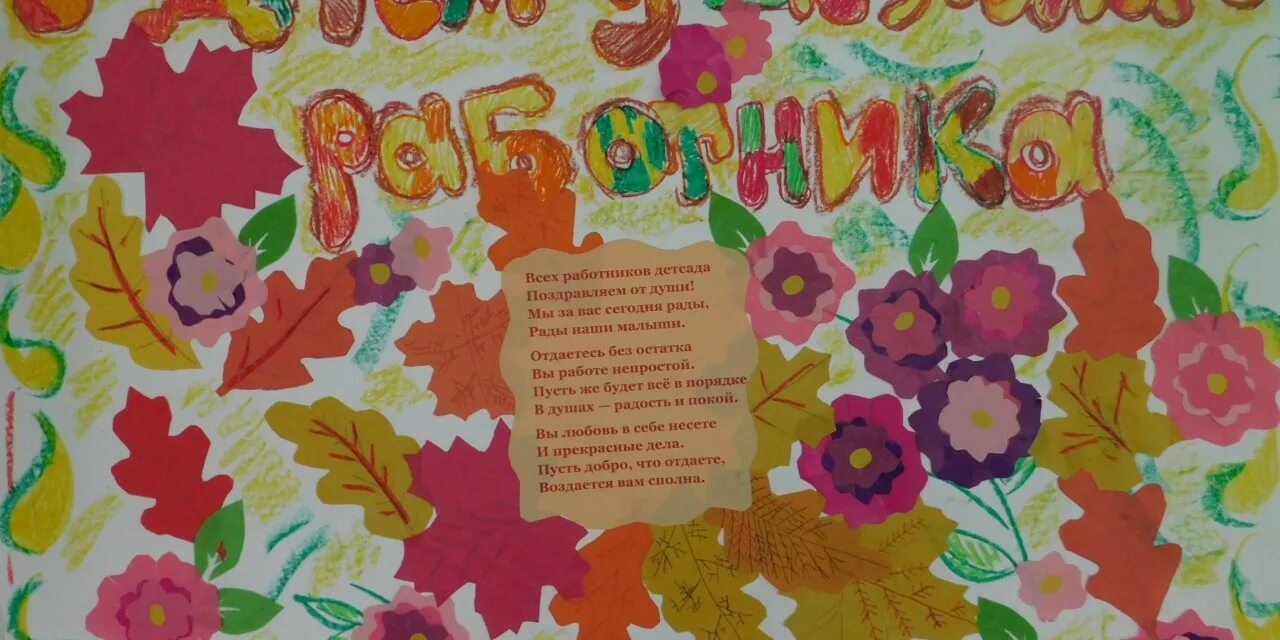 работника
Всех работников детсада
Поздравляем от души!
Мы за вас сегодня рады,
Рады наши малыши.
Отдаетесь без остатка
Вы работе непростой.
Пусть же будет всё в порядке
В душах — радость и покой.
Вы любовь в себе несете
И прекрасные дела.
Пусть добро, что отдаете,
Воздается вам сполна.